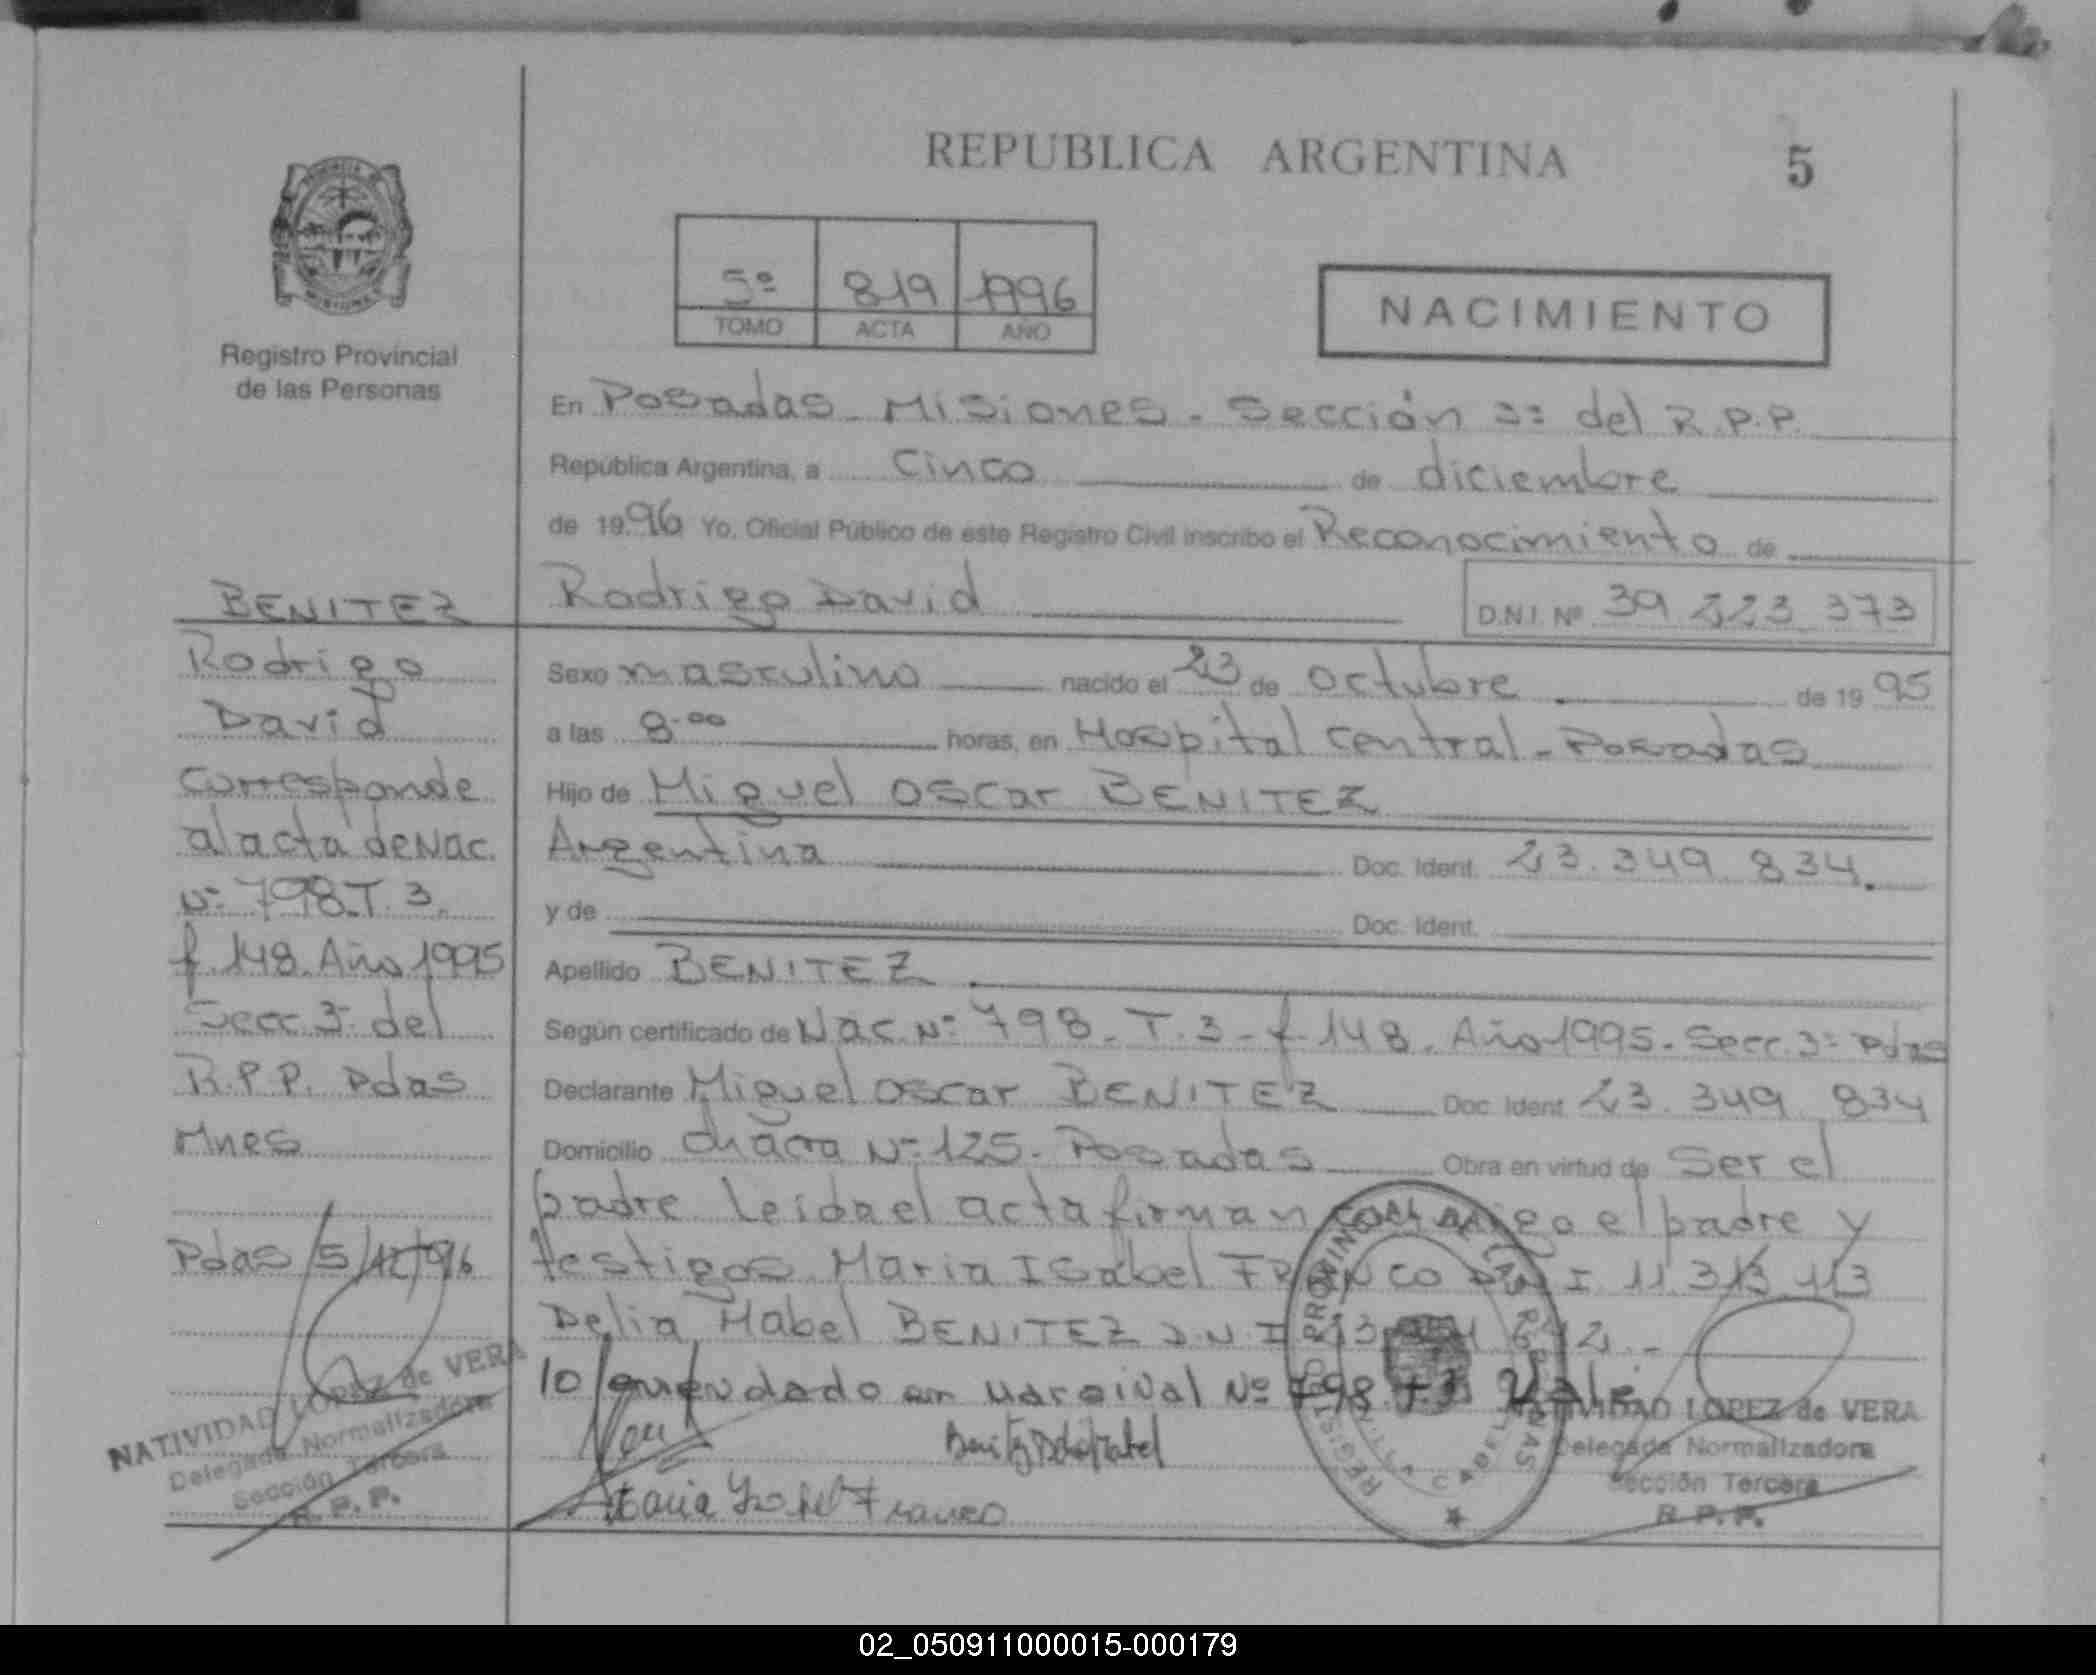 REPUBLICA ARGENTINA
5
5º 819 1996
TOMO ACTA AÑO
NACIMIENTO
Registro Provincial
de las Personas
En Posadas - Misiones - Sección 3ª del R.P.P.
República Argentina, a Cinco de diciembre
de 1996 Yo, Oficial Público de este Registro Civil inscribo el Reconocimiento de
Rodrigo David D.N.I. Nº 39.223.373
Sexo masculino nacido el 23 de Octubre de 1995
a las 8.00 horas, en Hospital Central - Posadas
Hijo de Miguel Oscar BENITEZ
Argentina Doc. Ident. 23.349.834.
y de Doc. Ident.
Apellido BENITEZ
Según certificado de Nac. Nº 798 - T.3 - f. 148. Año 1995. Secc. 3ª Pdas
Declarante Miguel Oscar BENITEZ Doc. Ident. 23.349.834
Domicilio Chacra Nº 125. Posadas Obra en virtud de Ser el
padre Leída el acta firman el padre y
testigos Maria Isabel FRANCO D.N.I 11.313.113
Delia Mabel BENITEZ D.N.I
lo enmendado en Marginal Nº 798 T.3 Vale.
Benitez Delia Mabel
Maria Isabel Franco
NATIVIDAD LOPEZ de VERA
Delegada Normalizadora
Sección Tercera
R.P.P.
BENITEZ
Rodrigo
David
Corresponde
al acta de Nac.
Nº 798 T. 3.
f 148. Año 1995
Secc. 3ª del
R.P.P. Pdas
Mnes
Pdas 5/12/96
NATIVIDAD LOPEZ de VERA
Delegada Normalizadora
Sección Tercera
R.P.P.
02_050911000015-000179